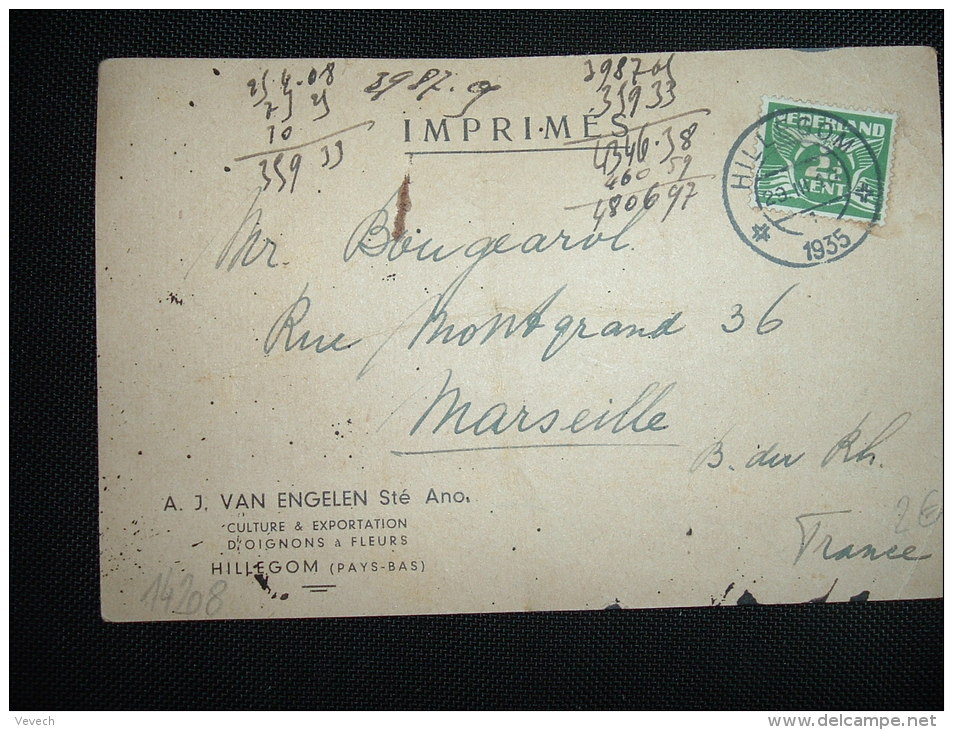 25.4.08
75 25
10
359 33
3987.05
3987 05
359 33
4346.38
460 59
4806 97
IMPRIMÉS
NEDERLAND
2½
CENT
HILLEGOM
1935
Mr Bougearol
Rue Montgrand 36
Marseille
B. du Rh.
France
2€
A. J. VAN ENGELEN Sté Ano.
CULTURE & EXPORTATION
D'OIGNONS à FLEURS
HILLEGOM (PAYS-BAS)
14208
Vevech
www.delcampe.net